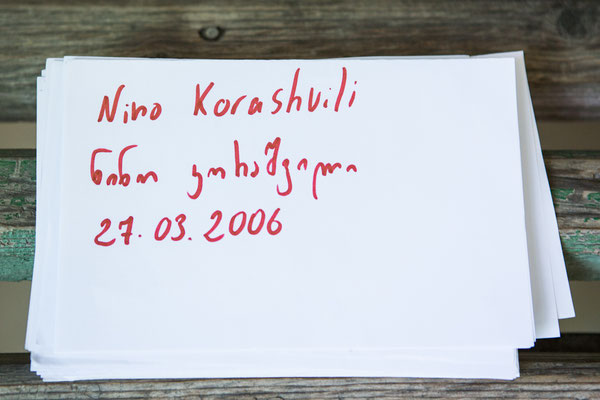 Nino Korashvili
ნინო კორაშვილი
27.03.2006